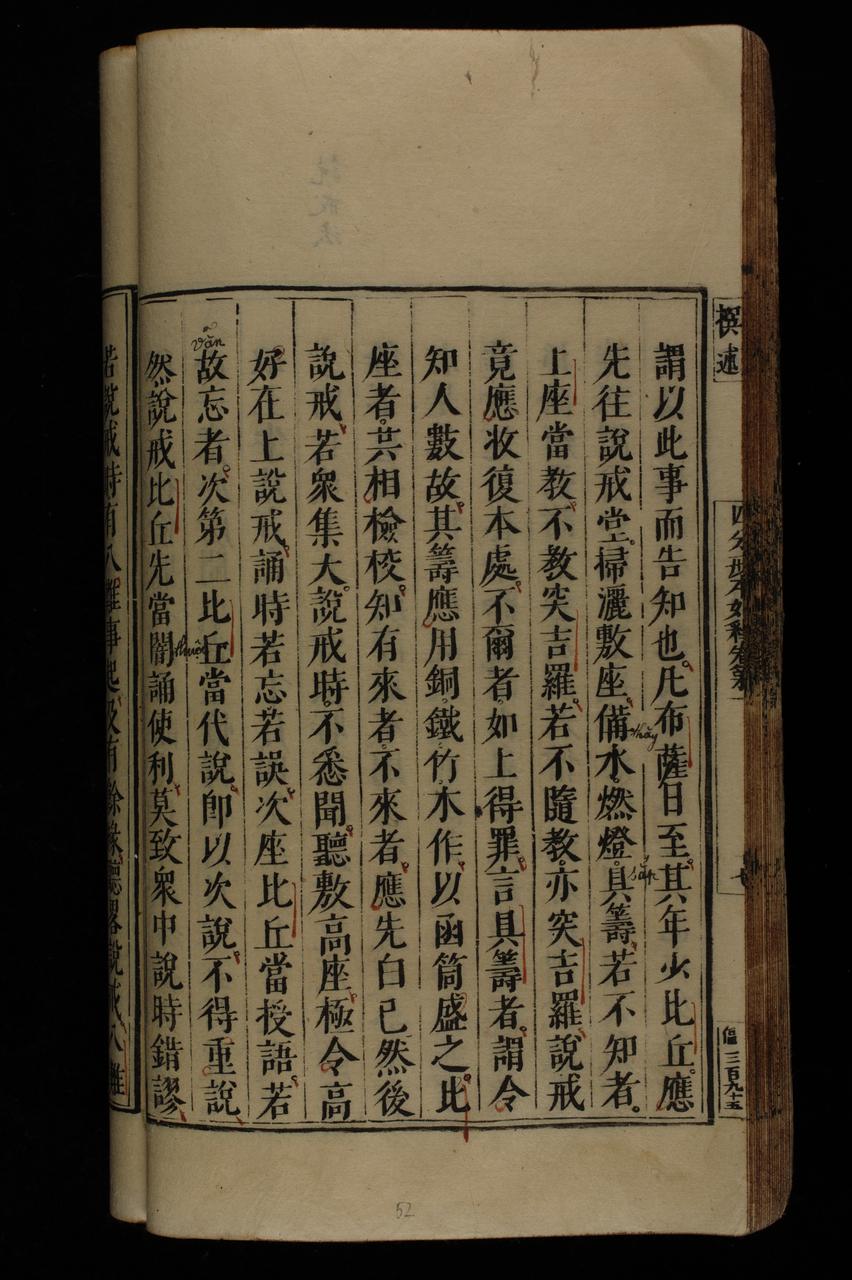 撰述
偪三百九十五
謂以此事而告知也凡布薩日至其年少比丘應
先往說戒堂掃灑敷座備水燃燈具籌若不知者
上座當教不教突吉羅若不隨教亦突吉羅說戒
竟應收復本處不爾者如上得罪言具籌者謂令
知人數故其籌應用銅鐵竹木作以函筒盛之比
座者共相檢校知有來者不來者應先白已然後
說戒若衆集大說戒時不悉聞聽敷高座極令高
好在上說戒誦時若忘若誤次座比丘當授語若
故忘者次第二比丘當代說卽以次說不得重說
然說戒比丘先當闇誦使利莫致衆中說時錯謬
若說戒時有八難事起及有餘緣聽畧說戒八難
văn
thầy
52